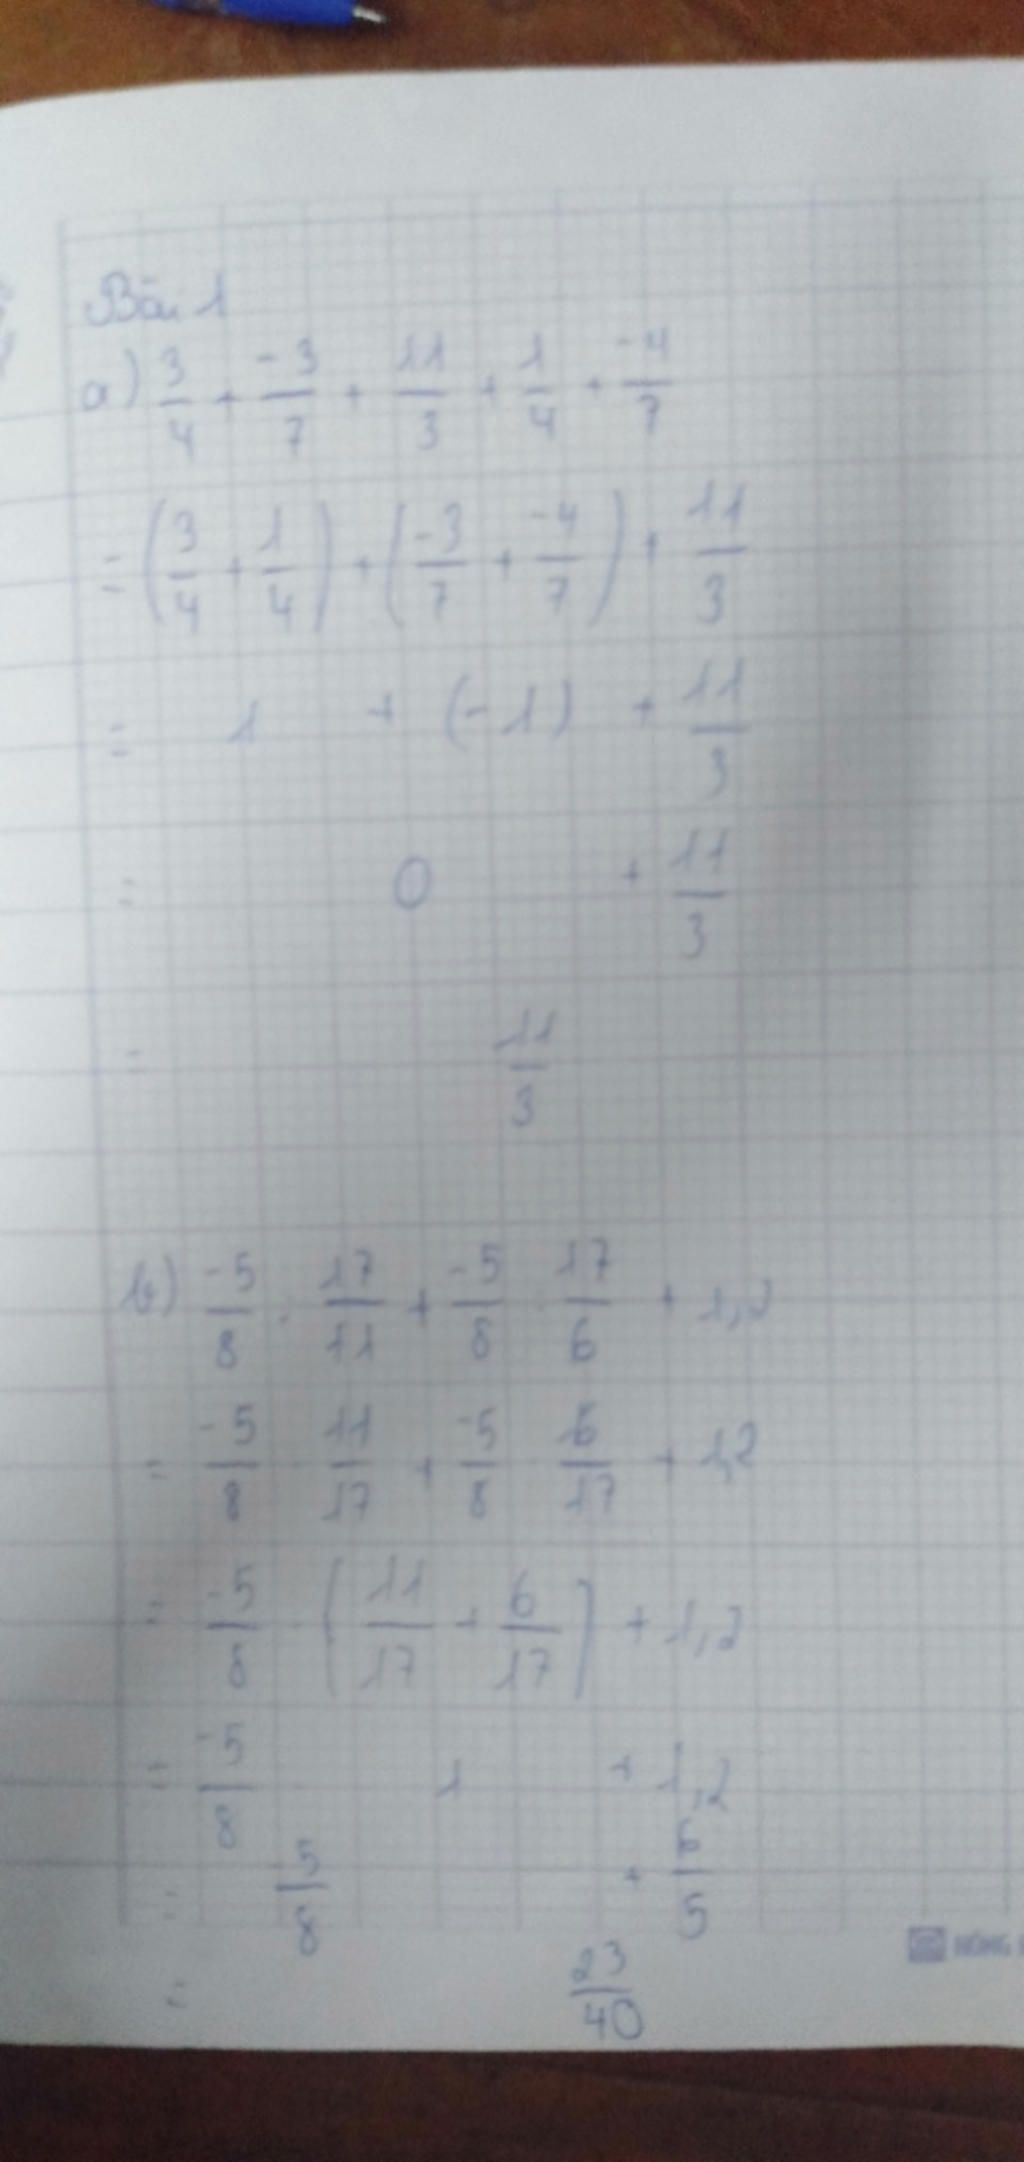 Bài 1
a) 3/4 + -3/7 + 11/3 + 1/4 + -4/7
= (3/4 + 1/4) + (-3/7 + -4/7) + 11/3
= 1 + (-1) + 11/3
= 0 + 11/3
= 11/3
b) -5/8 : 17/11 + -5/8 : 17/6 + 1,2
= -5/8 · 11/17 + -5/8 · 6/17 + 1,2
= -5/8 · (11/17 + 6/17) + 1,2
= -5/8 · 1 + 1,2
= -5/8 + 6/5
= 23/40
HỒNG